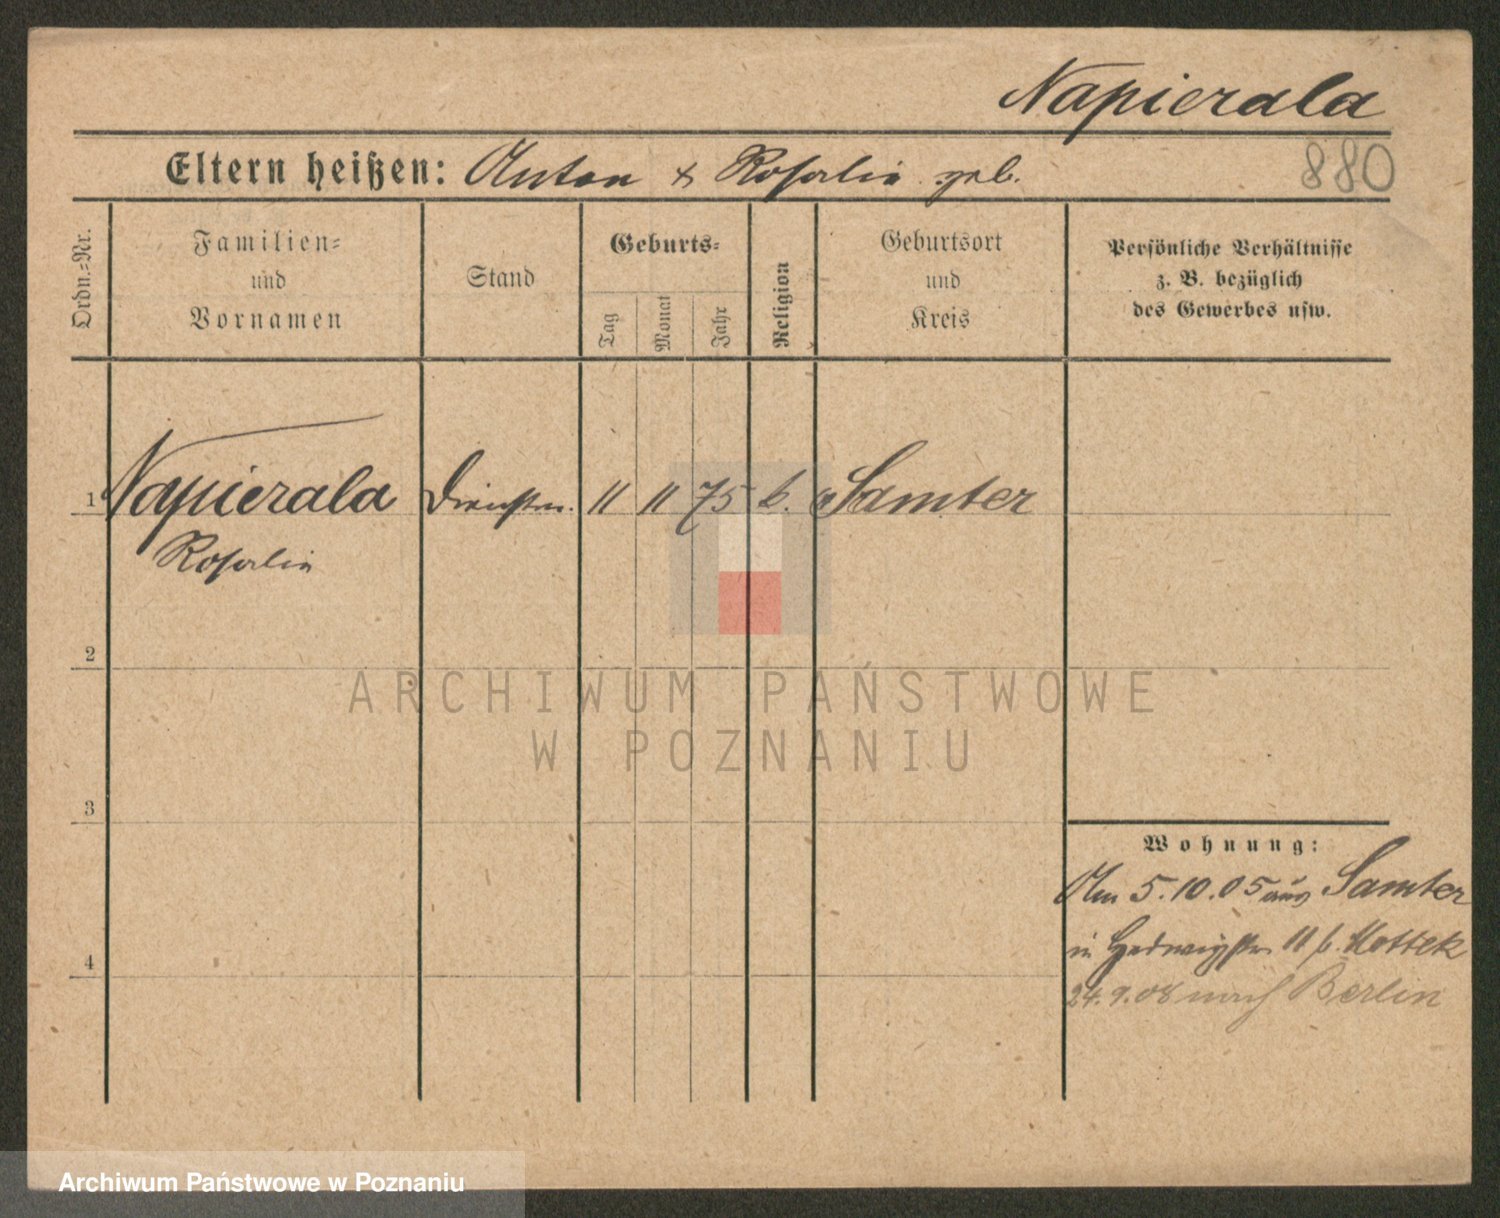 Napierala
Eltern heißen: Anton & Rosalia geb.
880
Ordn.=Nr.
Familien=
und
Vornamen
Stand
Geburts=
Tag
Monat
Jahr
Religion
Geburtsort
und
Kreis
Persönliche Verhältnisse
z. B. bezüglich
des Gewerbes usw.
1 Napierala Dienstm. 11 11 75 k. Samter
Rosalia
2
3
4
Wohnung:
Am 5.10.05 aus Samter
in Hedwigstr 11 b. Mottek
24.9.08 nach Berlin
ARCHIWUM PAŃSTWOWE
W POZNANIU
Archiwum Państwowe w Poznaniu